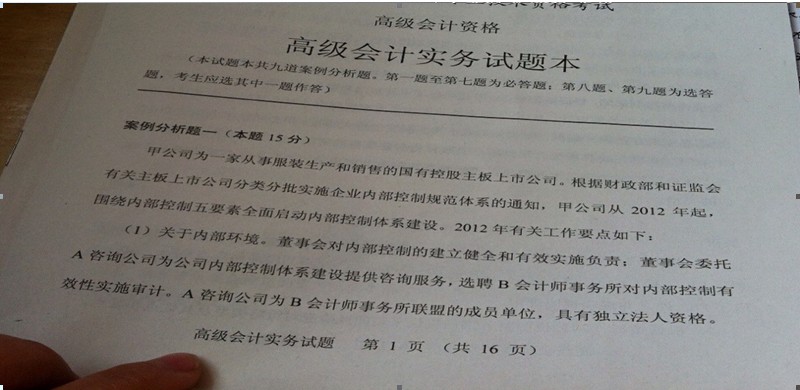 技术资格考试
高级会计资格
高级会计实务试题本
（本试题本共九道案例分析题。第一题至第七题为必答题；第八题、第九题为选答
题，考生应选其中一题作答）
案例分析题一（本题 15 分）
甲公司为一家从事服装生产和销售的国有控股主板上市公司。根据财政部和证监会
有关主板上市公司分类分批实施企业内部控制规范体系的通知，甲公司从 2012 年起，
围绕内部控制五要素全面启动内部控制体系建设。2012 年有关工作要点如下：
（1）关于内部环境。董事会对内部控制的建立健全和有效实施负责；董事会委托
A 咨询公司为公司内部控制体系建设提供咨询服务，选聘 B 会计师事务所对内部控制有
效性实施审计。A 咨询公司为 B 会计师事务所联盟的成员单位，具有独立法人资格。
高级会计实务试题 第 1 页 （共 16 页）